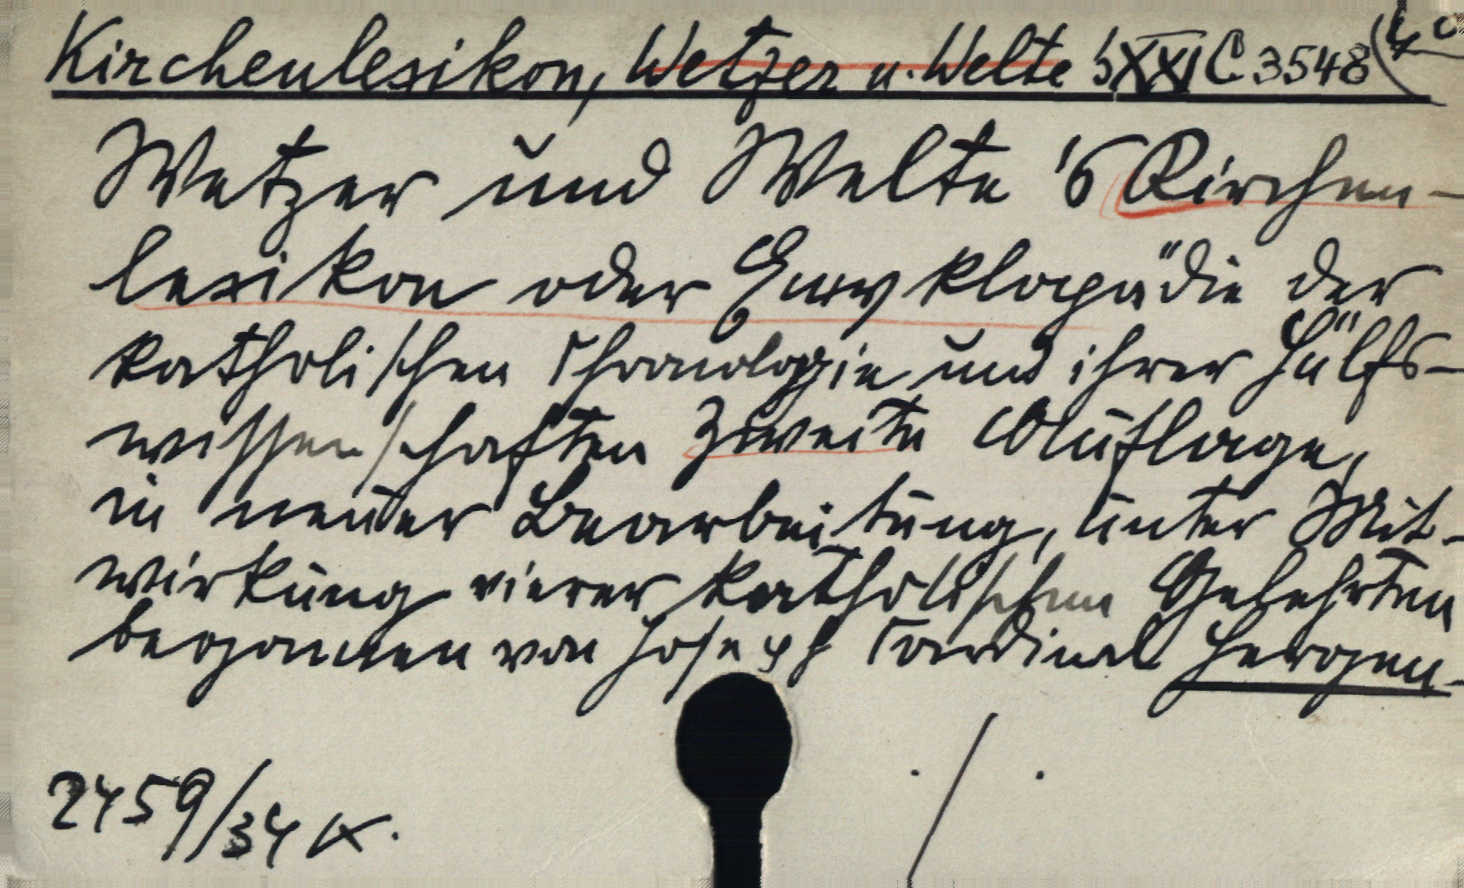 Kirchenlexikon, Wetzer u. Welte's XXI C 3548
Wetzer und Welte's Kirchen-
lexikon oder Encyklopädie der
katholischen Theologie und ihrer Hülfs-
wissenschaften Zweite Auflage,
in neuer Bearbeitung, unter Mit-
wirkung vieler katholischen Gelehrten
begonnen von Joseph Cardinal Hergen-
2459/34 K.